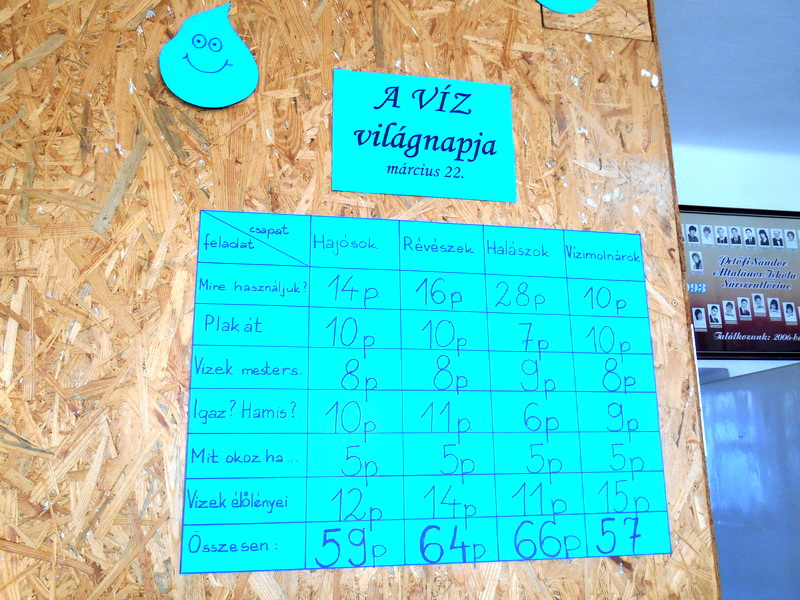 A VÍZ
világnapja
március 22.
csapat
feladat Hajósok Révészek Halászok Vízimolnárok
Mire használjuk? 14p 16p 28p 10p
Plakát 10p 10p 7p 10p
Vizek mesters. 8p 8p 9p 8p
Igaz? Hamis? 10p 11p 6p 9p
Mit okoz ha... 5p 5p 5p 5p
Vizek élőlényei 12p 14p 11p 15p
Összesen: 59p 64p 66p 57
Petőfi Sándor
Általános Iskola
993 Sárszentlőrinc
Találkozunk: 2006-b